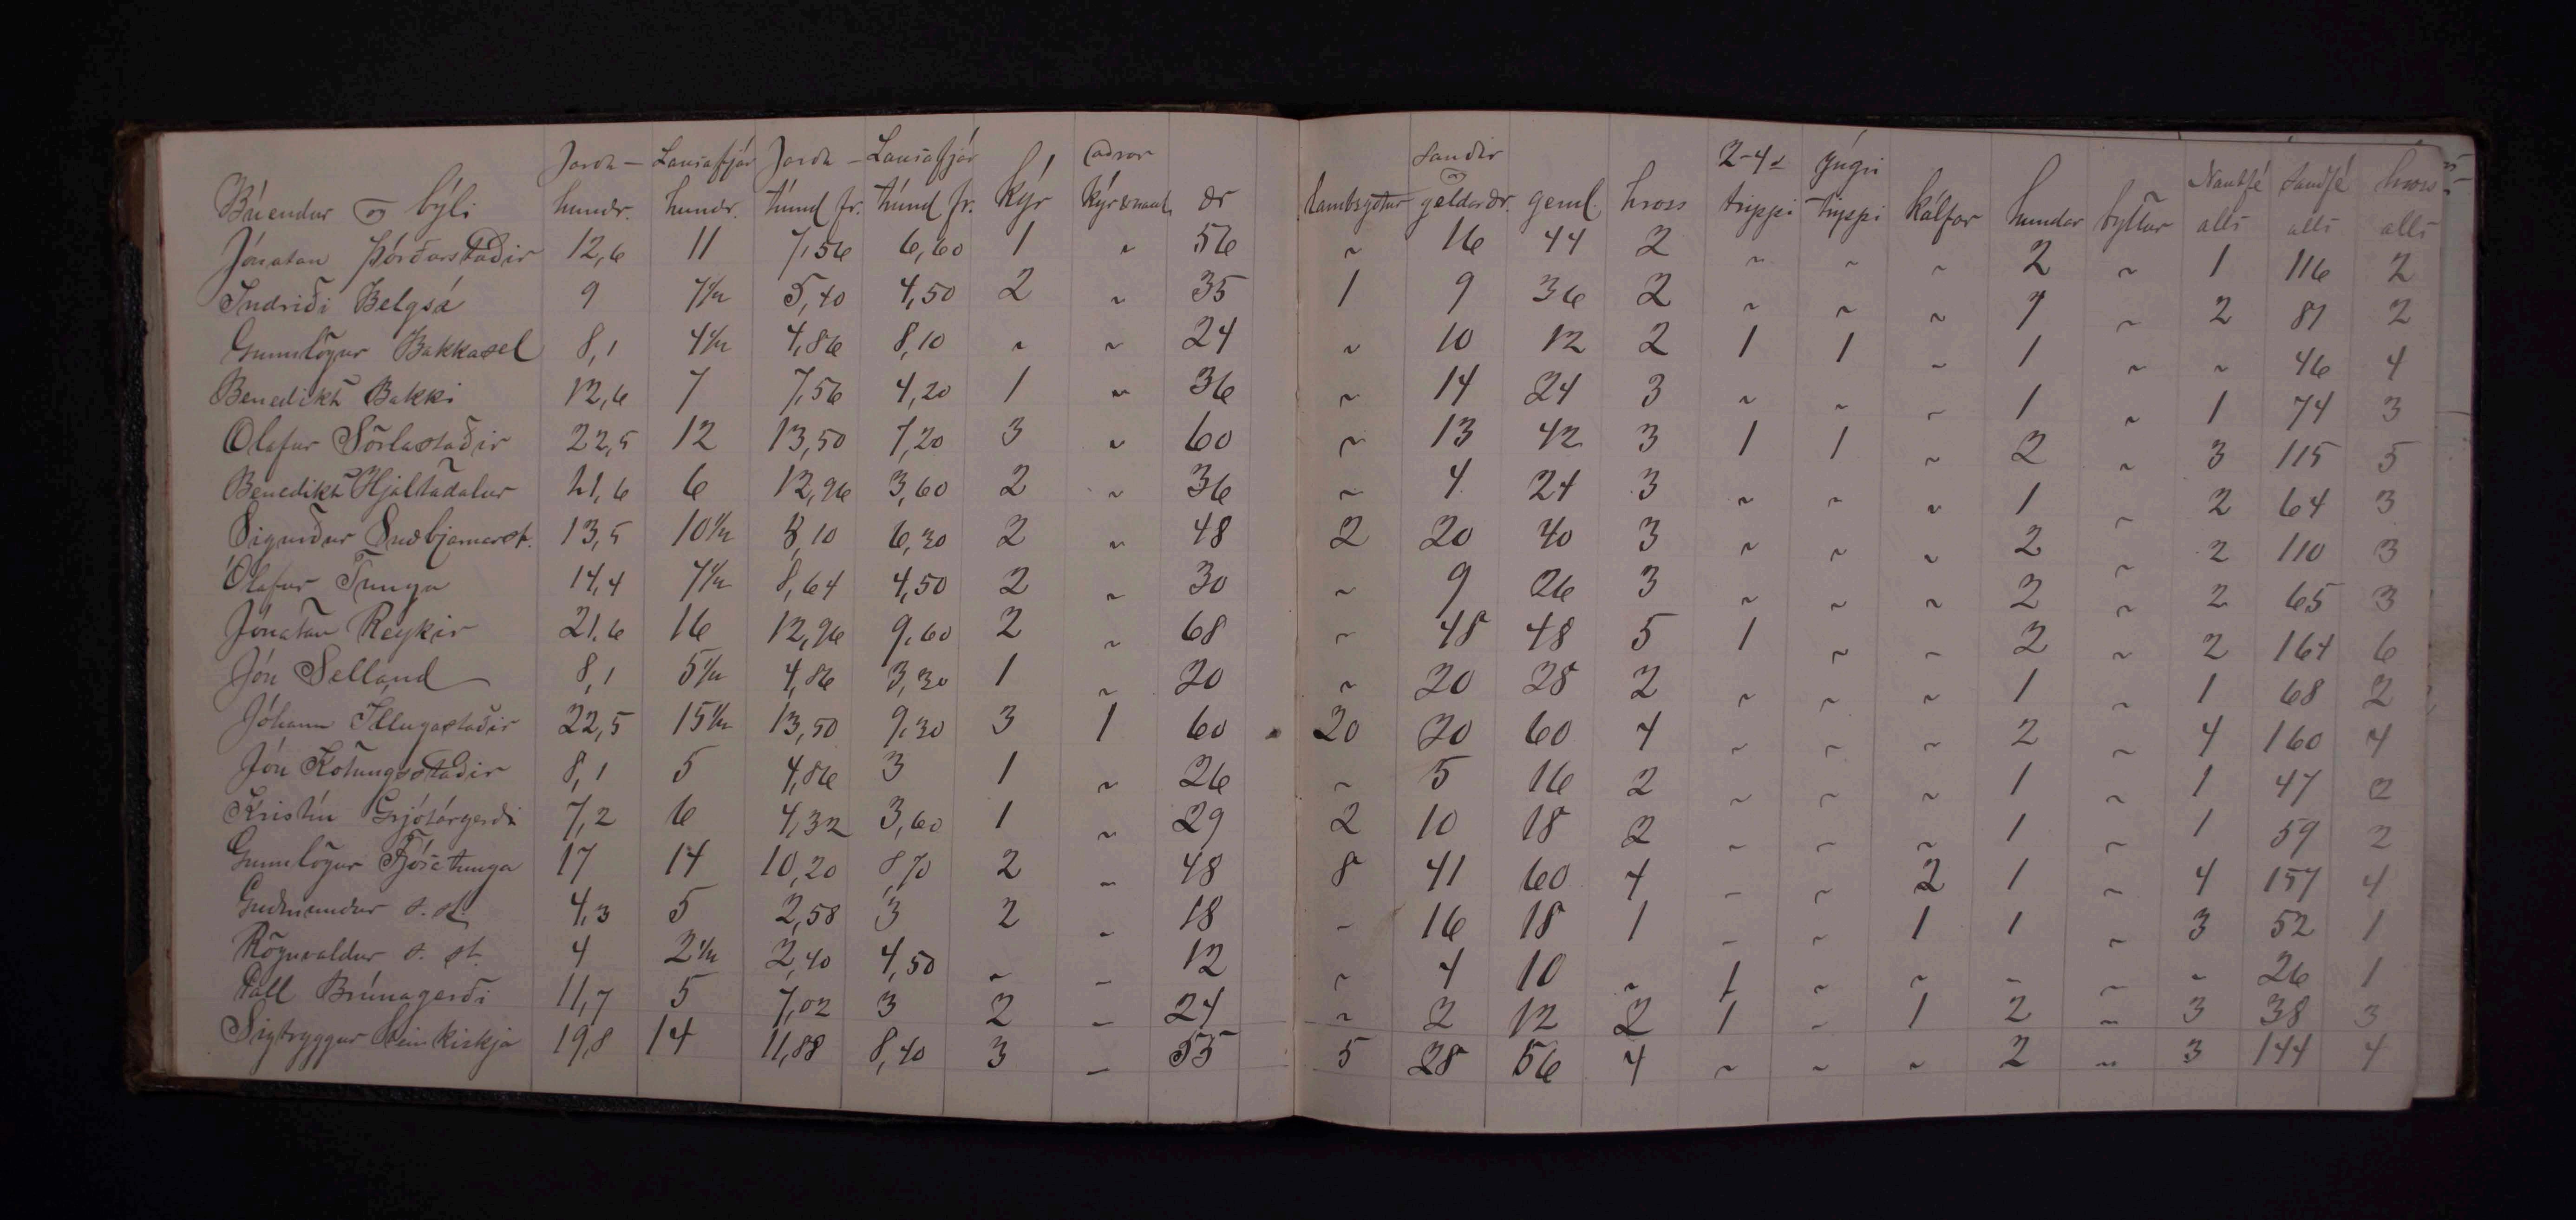 Jarða- Lausafjár Jarða- Lausafjár aðrar Sauðir 2-4 v yngri Nautfé Sauðfé hross
Búendur og býli hundr. hundr. tíund fr. tíund fr. kýr kýr & naut ær Lambsgotur og geldar ær. geml. hross trippi trippi kálfar hundar byttur alls alls alls
Jónatan Þórðarstaðir 12,6 11 7,56 6,60 1 " 56 " 16 44 2 " " " 2 " 1 116 2
Indriði Belgsá 9 7 1/2 5,40 4,50 2 " 35 1 9 36 2 " " " 1 " 2 81 2
Gunnlögur Bakkasel 8,1 4 1/2 4,86 8,10 " " 24 " 10 12 2 1 1 " 1 " " 46 4
Benedikt Bakki 12,6 7 7,56 4,20 1 " 36 " 14 24 3 " " " 1 " 1 74 3
Olafur Sörlastaðir 22,5 12 13,50 7,20 3 " 60 " 13 42 3 1 1 " 2 " 3 115 5
Benedikt Hjaltadalur 21,6 6 12,96 3,60 2 " 36 " 4 24 3 " " " 1 " 2 64 3
Sigurður Snæbjarnarst. 13,5 10 1/2 8,10 6,30 2 " 48 2 20 40 3 " " " 2 " 2 110 3
Ólafur Tunga 14,4 7 1/2 8,64 4,50 2 " 30 " 9 26 3 " " " 2 " 2 65 3
Jónatan Reykir 21,6 16 12,96 9,60 2 " 68 " 48 48 5 1 " " 2 " 2 164 6
Jón Selland 8,1 5 1/2 4,86 3,30 1 " 20 " 20 28 2 " " " 1 " 1 68 2
Jóhann Illugastaðir 22,5 15 1/2 13,50 9,30 3 1 60 20 20 60 4 " " " 2 " 4 160 4
Jón Kotungsstaðir 8,1 5 4,86 3 1 " 26 " 5 16 2 " " " 1 " 1 47 2
Kristín Grjótárgerði 7,2 6 4,32 3,60 1 " 29 2 10 18 2 " " " 1 " 1 59 2
Gunnlögur Fjósatunga 17 14 10,20 8,70 2 " 48 8 41 60 4 " " 2 1 " 4 157 4
Guðmundur s. st. 4,3 5 2,58 3 2 " 18 " 16 18 1 " " 1 1 " 3 52 1
Rögnvaldur s. st. 4 2 1/2 2,40 4,50 " " 12 " 4 10 " 1 " " " " " 26 1
Páll Brúnagerði 11,7 5 7,02 3 2 " 24 " 2 12 2 1 " 1 2 " 3 38 3
Sigtryggur Steinkirkja 19,8 14 11,88 8,40 3 " 55 5 28 56 4 " " " 2 " 3 144 4